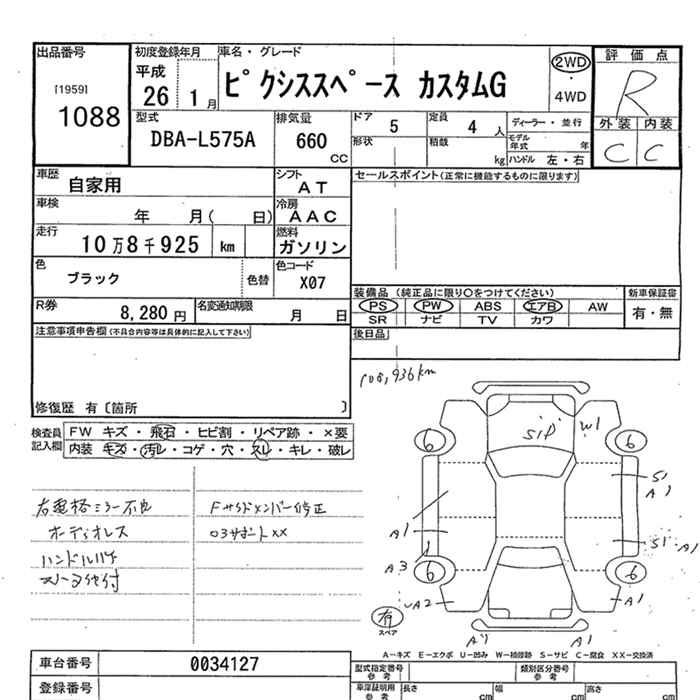 出品番号 初度登録年月 車名・グレード 評価点
[1959] 平成 ピクシススペース カスタムG 2WD R
1088 26 1月 4WD
型式 排気量 ドア 5 定員 4人 ディーラー・並行 外装 内装
DBA-L575A 660 CC 形状 積載 kg モデル年式 年 C C
ハンドル 左・右
車歴 自家用 シフト AT セールスポイント(正常に機能するものに限ります)
車検 年 月( 日) 冷房 AAC
走行 10万8千925 km 燃料 ガソリン
色 ブラック 色替 色コード X07
装備品 (純正品に限り○をつけてください) 新車保証書
R券 8,280円 名変通知期限 月 日 PS PW ABS エアB AW 有・無
SR ナビ TV カワ
注意事項申告欄(不具合内容等は具体的に記入して下さい) 後日品
108,936km
修復歴 有〔箇所 〕
検査員記入欄 FW キズ・飛石・ヒビ割・リペア跡・×要
内装 キズ・汚レ・コゲ・穴・スレ・キレ・破レ
S1P W1
6 6
右電格ミラー不良 Fサイドメンバー修正 S1
A1
オーディオレス ロアサポートXX A1 S1 A1
ハンドル A3
6 6
A2 A1
有
スペア
A1 A1
A-キズ E-エクボ U-凹み W-補修跡 S-サビ C-腐食 XX-交換済
車台番号 0034127 型式指定番号 参考 類別区分番号 参考
登録番号 車庫証明用 参考 長さ cm 幅 cm 高さ cm